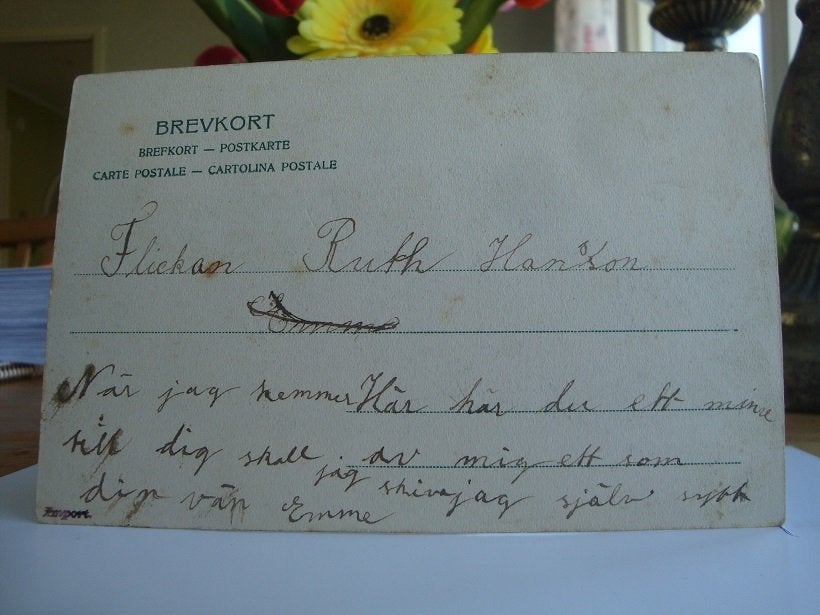 BREVKORT
BREFKORT — POSTKARTE
CARTE POSTALE — CARTOLINA POSTALE
Flickan Ruth Hanson
Emme
När jag kemmer Här har du ett minne
till dig skall jag av mig ett som
din vän Emme skiva jag själv sytt
Import.